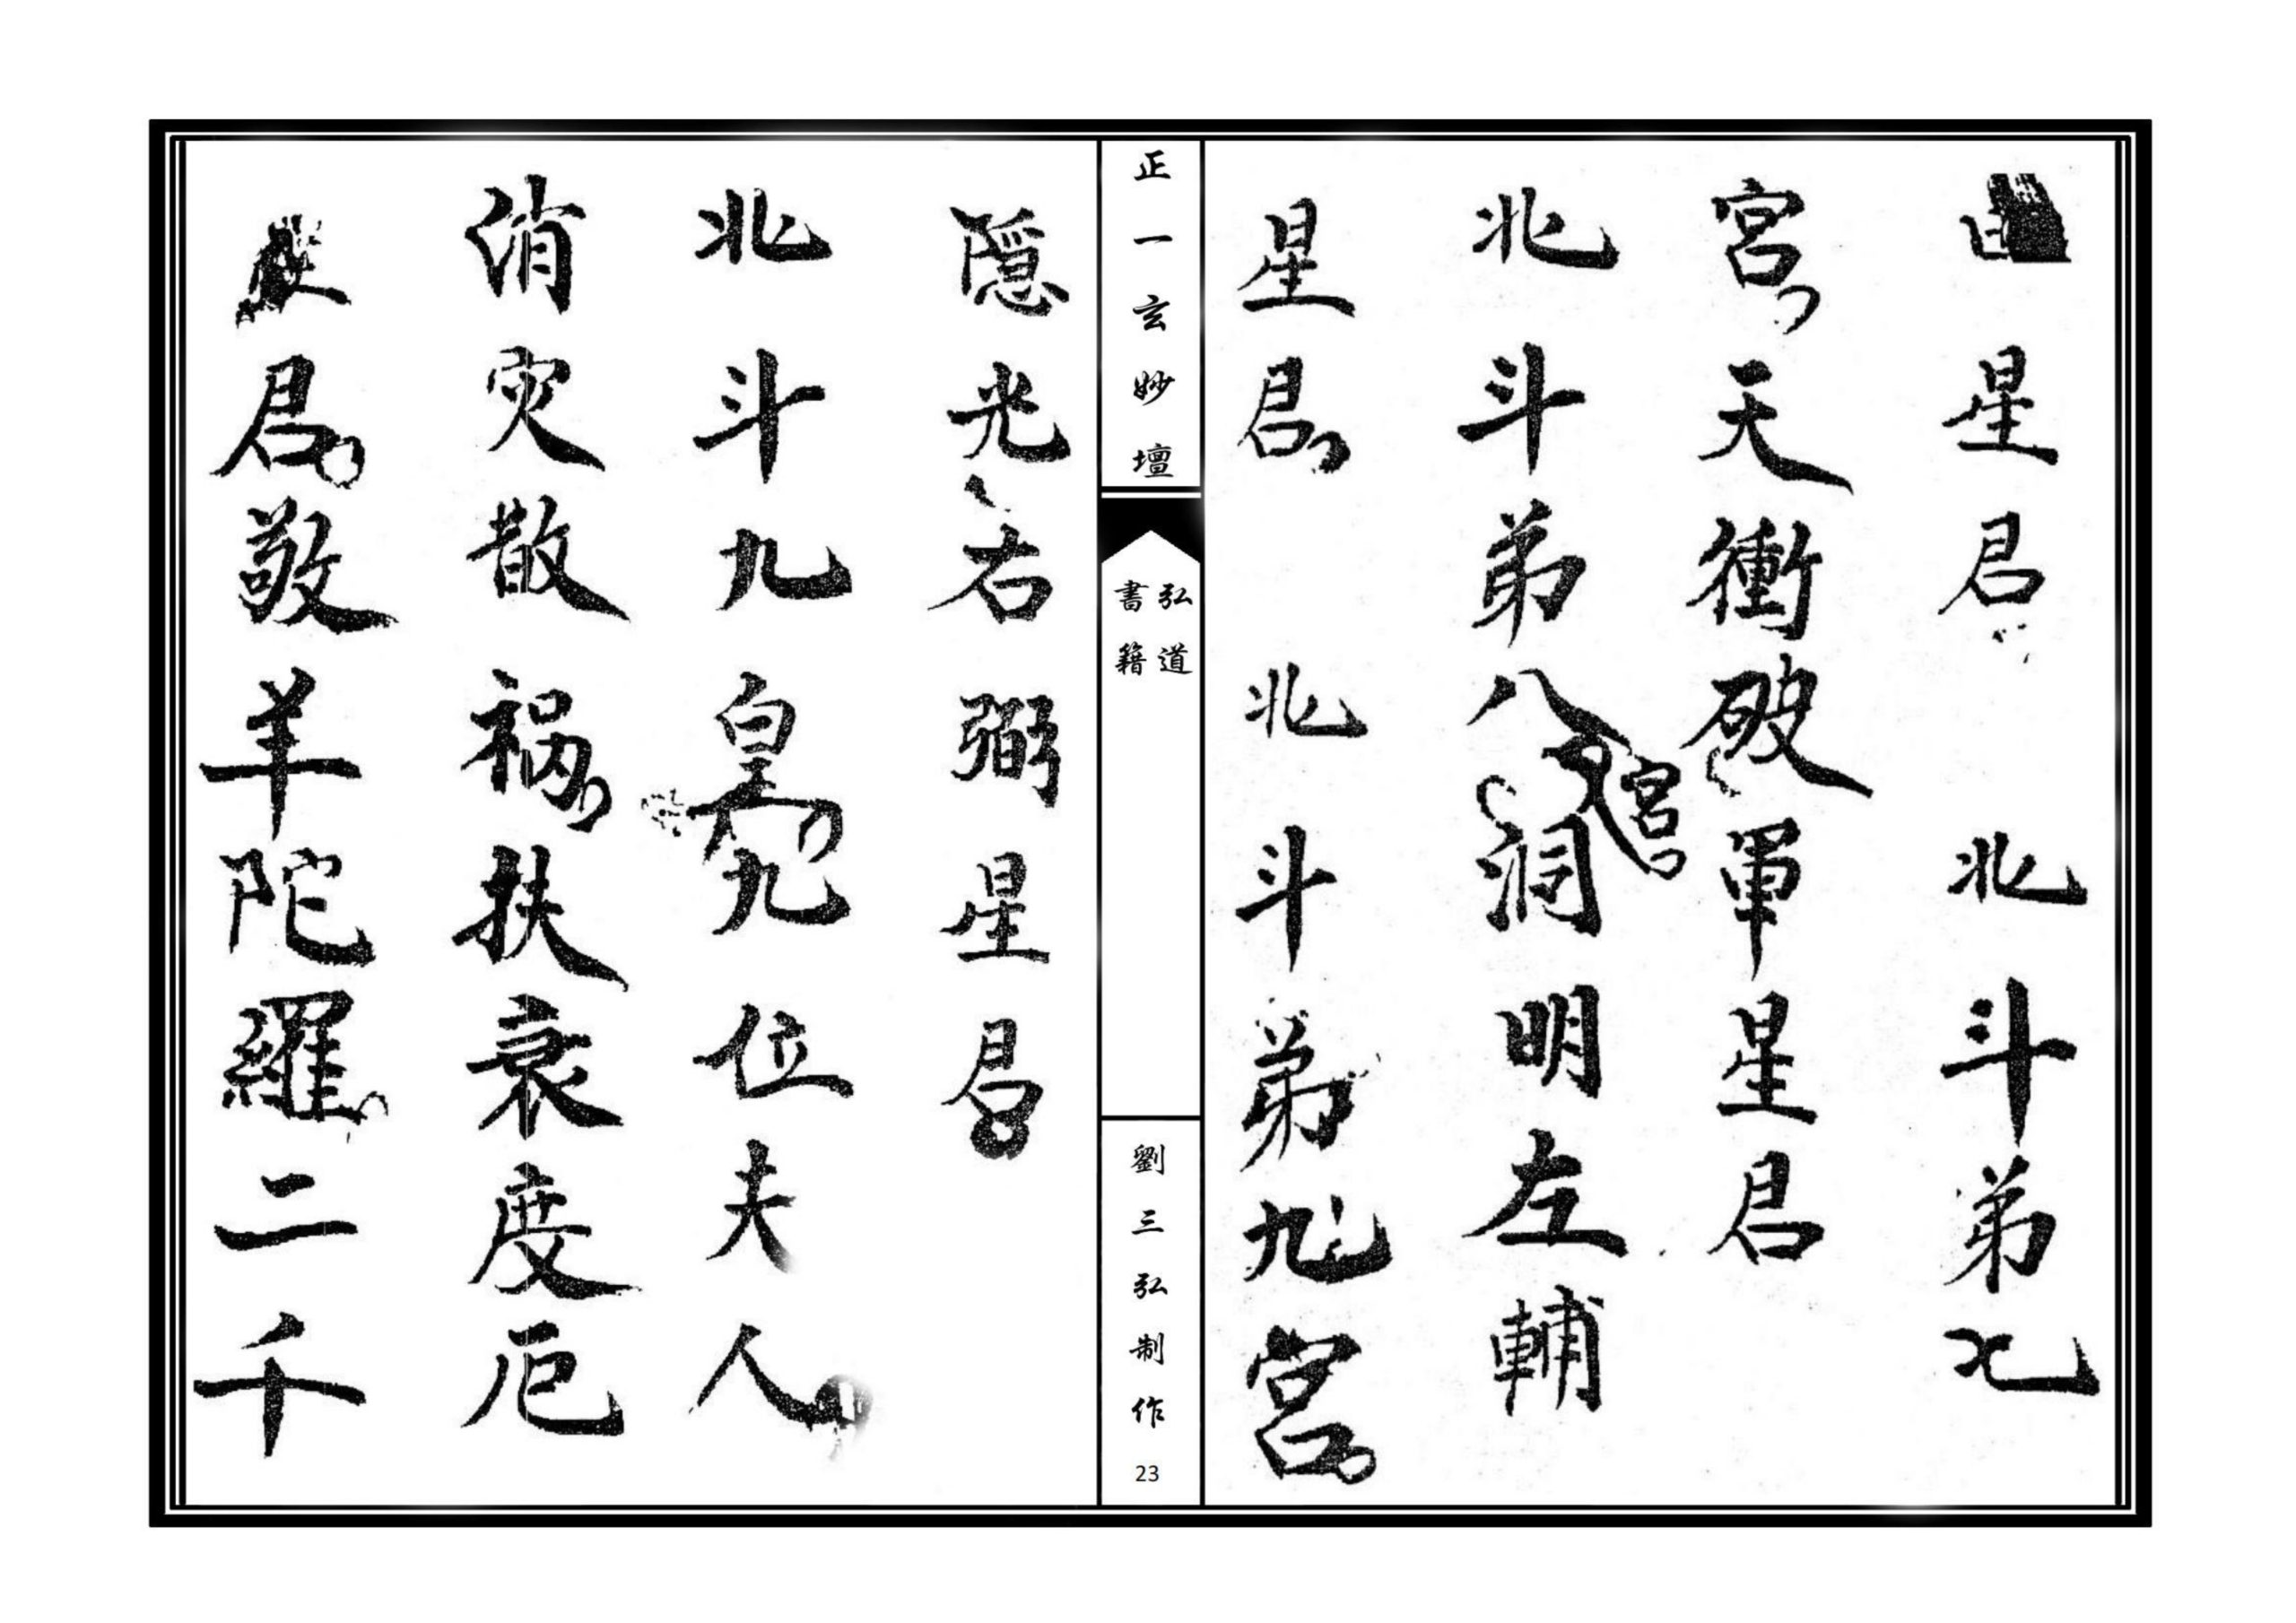 星君北斗弟七
宮天衝破軍星君
北斗弟八宮洞明左輔
星君北斗弟九宮
正一玄妙壇
弘道
書籍
劉三弘制作
23
隱光右弼星君
北斗九皇九位夫人
消灾散祸扶衰度厄
君敬羊陀羅二千